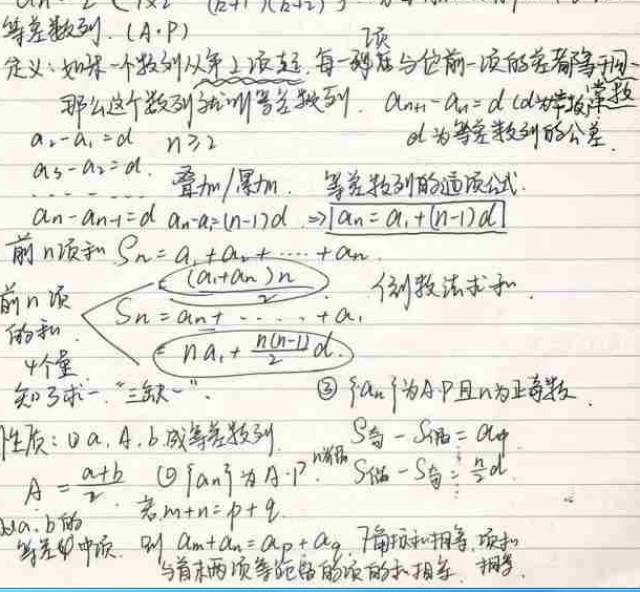 等差数列. (A·P)
定义:如果一个数列从第2项起,每一项与它前一项的差都等于同一
那么这个数列就叫等差数列. aₙ₊₁-aₙ=d (d为常数)
常数
a₂-a₁=d n≥2 d为等差数列的公差.
a₃-a₂=d.
叠加/累加. 等差数列的通项公式.
aₙ-aₙ₋₁=d aₙ-a₁=(n-1)d ⇒ aₙ=a₁+(n-1)d
前n项和 Sₙ=a₁+a₂+……+aₙ.
前n项的和. Sₙ = (a₁+aₙ)n/2
Sₙ=aₙ+……+a₁ 倒数法求和.
= na₁+n(n-1)/2 d.
4个量
知3求一."三缺一".
③ {aₙ}为A·P且n为正奇数.
性质:①a, A, b成等差数列. S奇-S偶=a中
A=(a+b)/2 ②{aₙ}为A·P. n为偶 S偶-S奇=n/2 d.
若m+n=p+q.
a.b的
等差中项. 则 aₘ+aₙ=aₚ+a_q. 下角标和相等,项和相等.
与首末两项等距离的项的和相等.